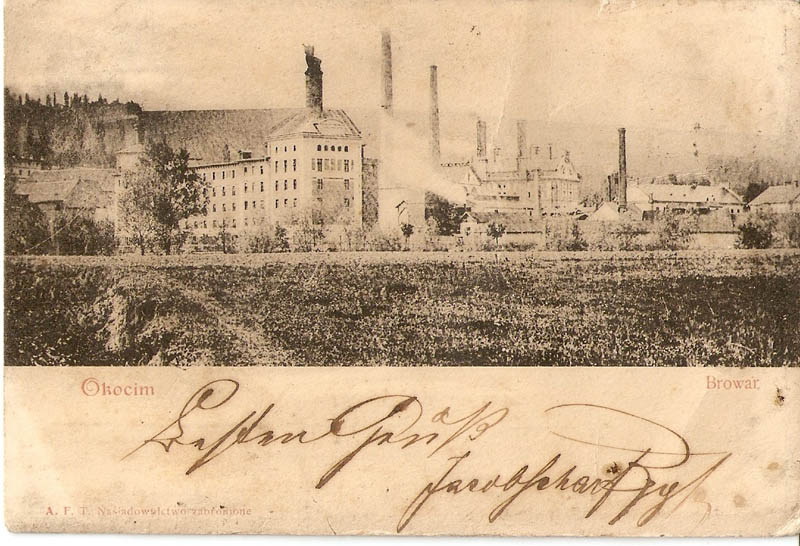 Okocim
Browar.
Besten Gruß
Jacob
A. F. T. Naśladownictwo zabronione